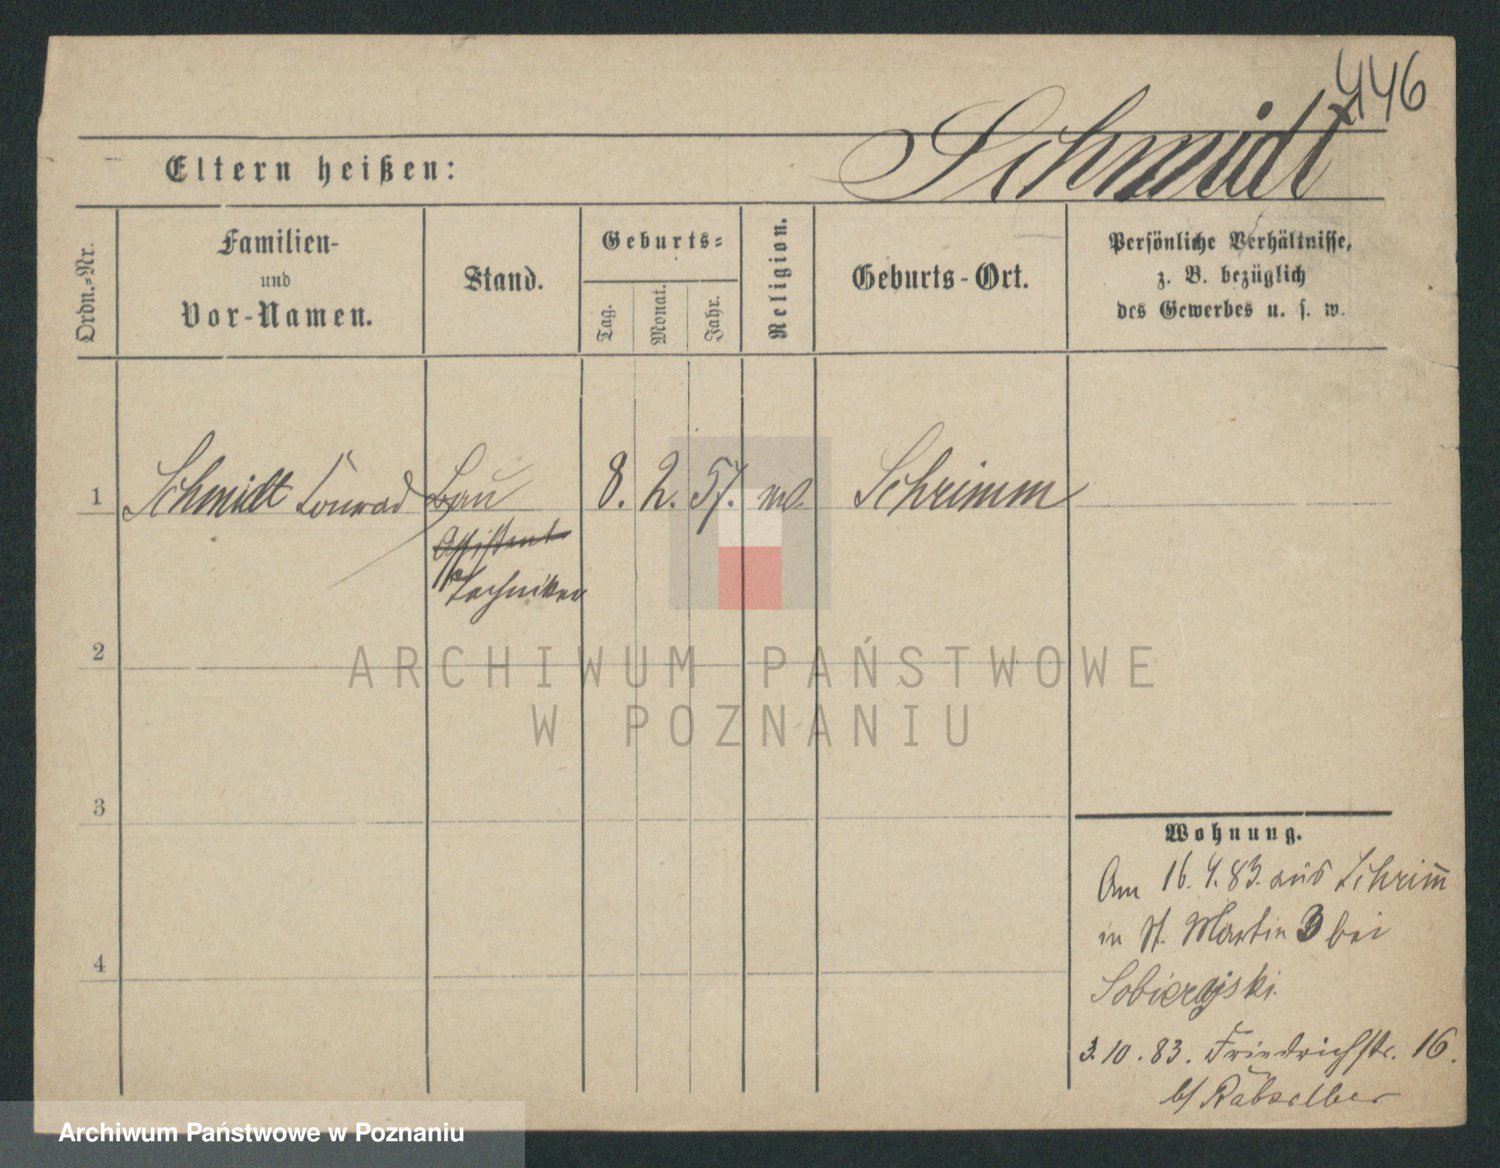 446
Schmidt
Eltern heißen:
Ordn.-Nr.
Familien-
und
Vor-Namen.
Stand.
Geburts-
Tag.
Monat.
Jahr.
Religion.
Geburts-Ort.
Persönliche Verhältnisse,
z. B. bezüglich
des Gewerbes u. s. w.
1 Schmidt Conrad Bau 8. 2. 57. Schrimm
Assistent
Techniker
2
3
4
Wohnung.
Am 16.4.83. aus Schrim̅
in St. Martin 3 bei
Sobierajski.
3.10.83. Friedrichstr. 16.
b/
ARCHIWUM PAŃSTWOWE
W POZNANIU
Archiwum Państwowe w Poznaniu